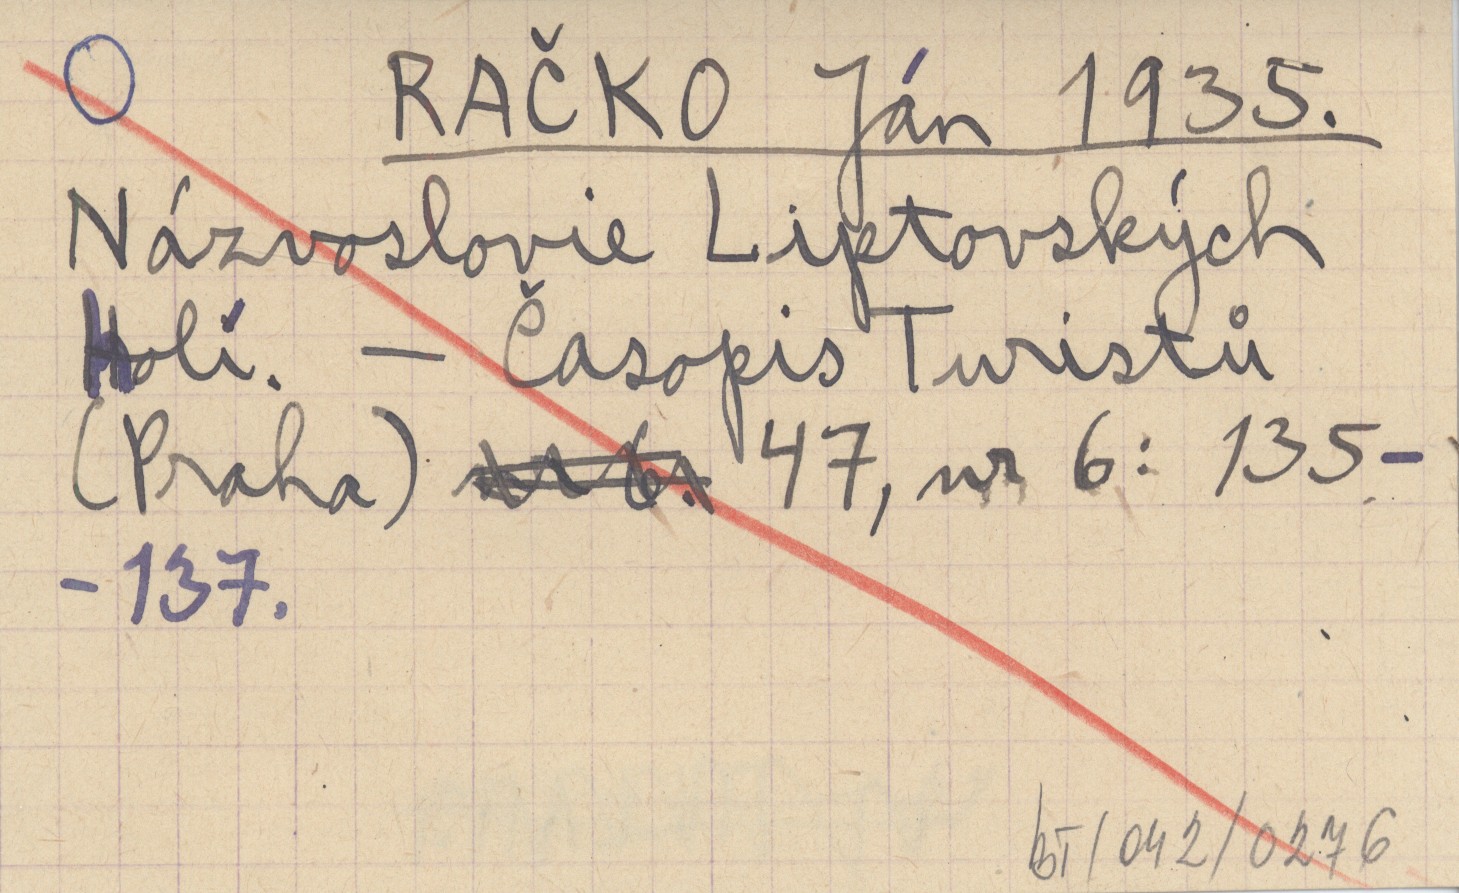 RAČKO Ján 1935.
Názvoslovie Liptovských
Holí. — Časopis Turistů
(Praha) nr 6. 47, nr 6: 135-
-137.
bT/042/0276